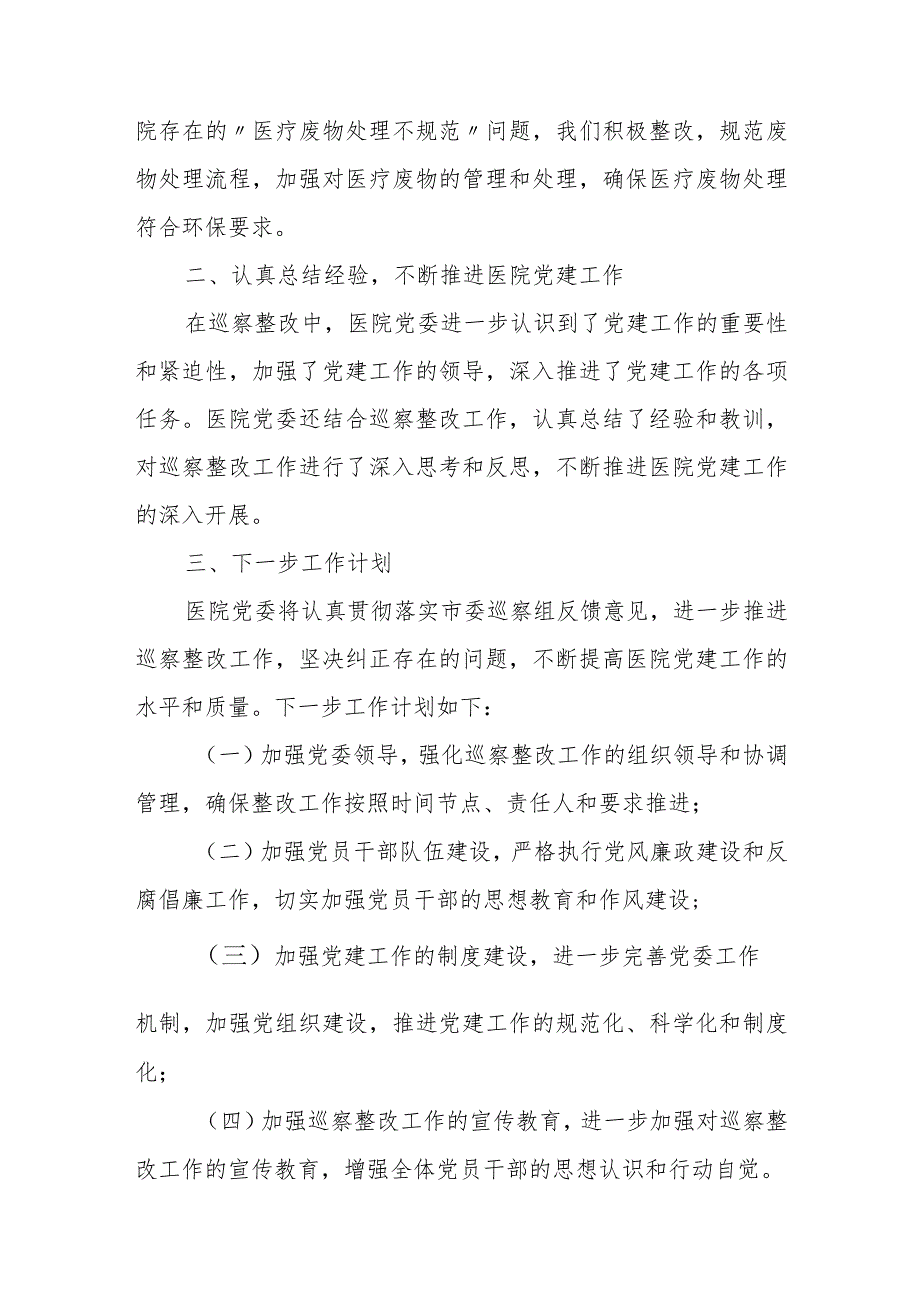 院存在的〃医疗废物处理不规范〃问题，我们积极整改，规范废
物处理流程，加强对医疗废物的管理和处理，确保医疗废物处理
符合环保要求。
二、认真总结经验，不断推进医院党建工作
在巡察整改中，医院党委进一步认识到了党建工作的重要性
和紧迫性，加强了党建工作的领导，深入推进了党建工作的各项
任务。医院党委还结合巡察整改工作，认真总结了经验和教训，
对巡察整改工作进行了深入思考和反思，不断推进医院党建工作
的深入开展。
三、下一步工作计划
医院党委将认真贯彻落实市委巡察组反馈意见，进一步推进
巡察整改工作，坚决纠正存在的问题，不断提高医院党建工作的
水平和质量。下一步工作计划如下：
（一）加强党委领导，强化巡察整改工作的组织领导和协调
管理，确保整改工作按照时间节点、责任人和要求推进；
（二）加强党员干部队伍建设，严格执行党风廉政建设和反
腐倡廉工作，切实加强党员干部的思想教育和作风建设；
（三）加强党建工作的制度建设，进一步完善党委工作
机制，加强党组织建设，推进党建工作的规范化、科学化和制度
化；
（四）加强巡察整改工作的宣传教育，进一步加强对巡察整
改工作的宣传教育，增强全体党员干部的思想认识和行动自觉。